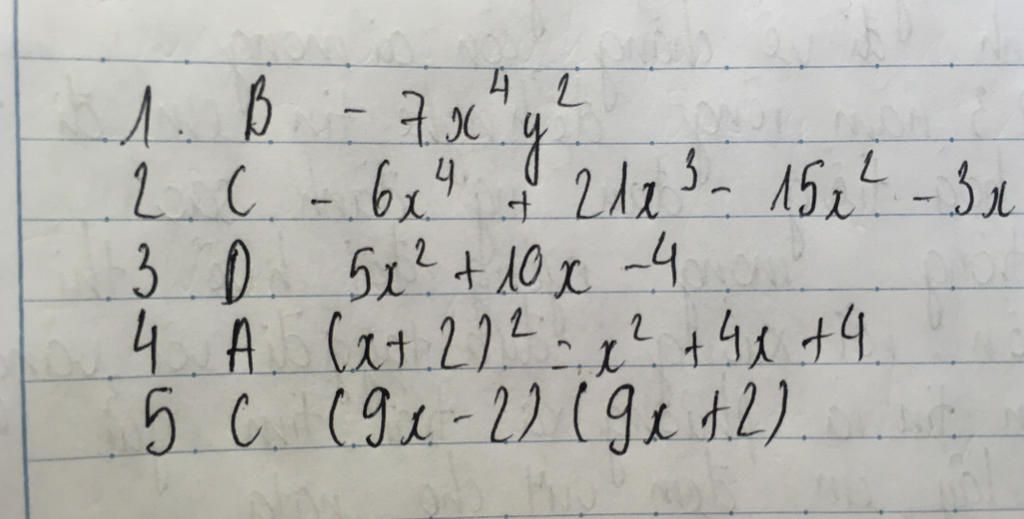 1. B - 7x⁴y²
2 C - 6x⁴ + 21x³ - 15x² - 3x
3 D 5x² + 10x - 4
4 A (x + 2)² = x² + 4x + 4
5 C (9x - 2) (9x + 2)